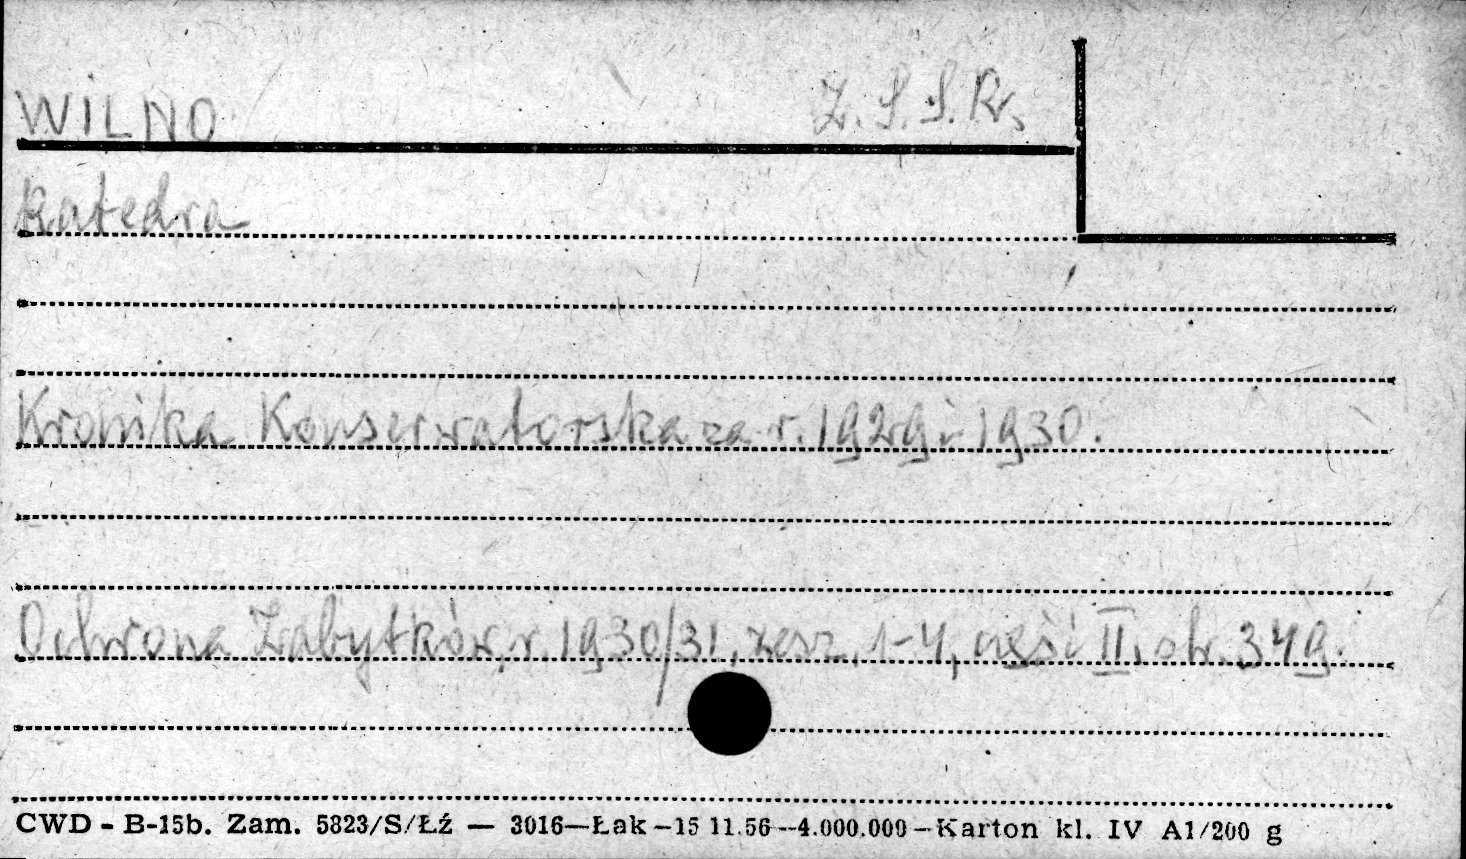 WILNO Z.S.S.R.
Katedra
Kronika Konserwatorska za r. 1929 i 1930.
Ochrona Zabytków, r. 1930/31, zesz. 1-4, część II, str. 349.
CWD - B-15b. Zam. 5823/S/Łź — 3016—Łak—15 11.56--4.000.000—Karton kl. IV A1/200 g